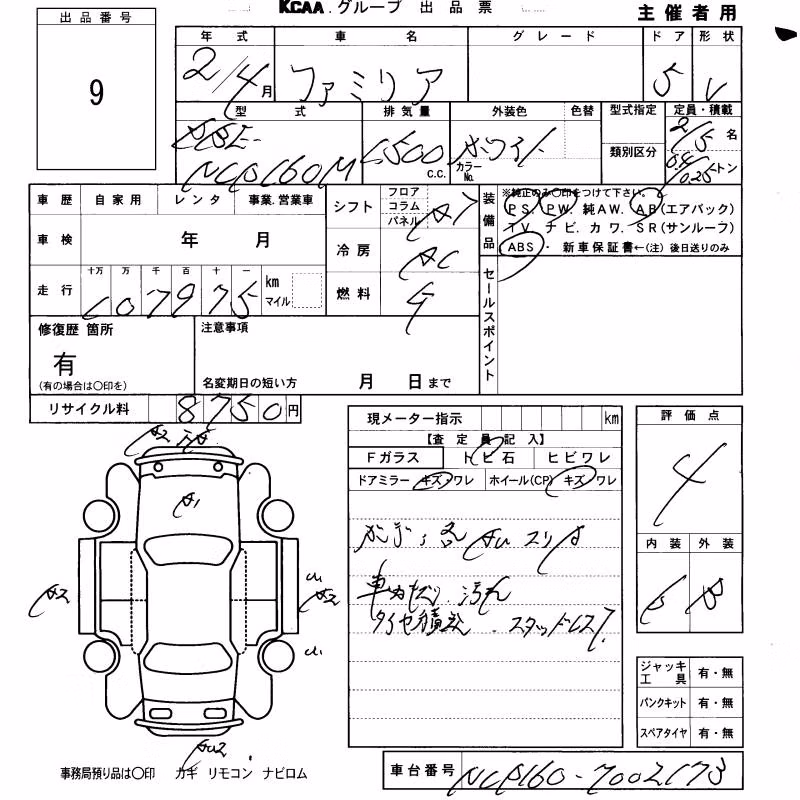 KCAA.グループ 出品票 主催者用
出品番号
9
年式 車名 グレード ドア 形状
2/4月 ファミリア 5 V
型式 排気量 外装色 色替 型式指定 定員・積載
5BE- 1500 C.C. ホワイト カラーNo. 類別区分 2/5名
NCP160M 0.4/0.25トン
車歴 自家用 レンタ 事業.営業車
車検 年 月
走行 十万 万 千 百 十 一 km マイル
107975
シフト フロア コラム パネル AT
冷房 AC
燃料 G
装備品 ※純正のみ○印をつけて下さい。
PS. PW. 純AW. AB(エアバック)
TV. ナビ. カワ. SR(サンルーフ)
ABS・ 新車保証書←(注) 後日送りのみ
セールスポイント
修復歴 箇所
有
(有の場合は○印を)
注意事項
名変期日の短い方 月 日まで
リサイクル料 8750円
現メーター指示 km
【査定員記入】
Fガラス トビ石 ヒビワレ
ドアミラー キズ・ワレ ホイール(CP) キズ・ワレ
タイヤ積込 . スタッドレス
評価点
4
内装 外装
B
A2
A1
A2
A2
ジャッキ工具 有・無
パンクキット 有・無
スペアタイヤ 有・無
事務局預り品は○印 カギ リモコン ナビロム
車台番号 NCP160-7002173